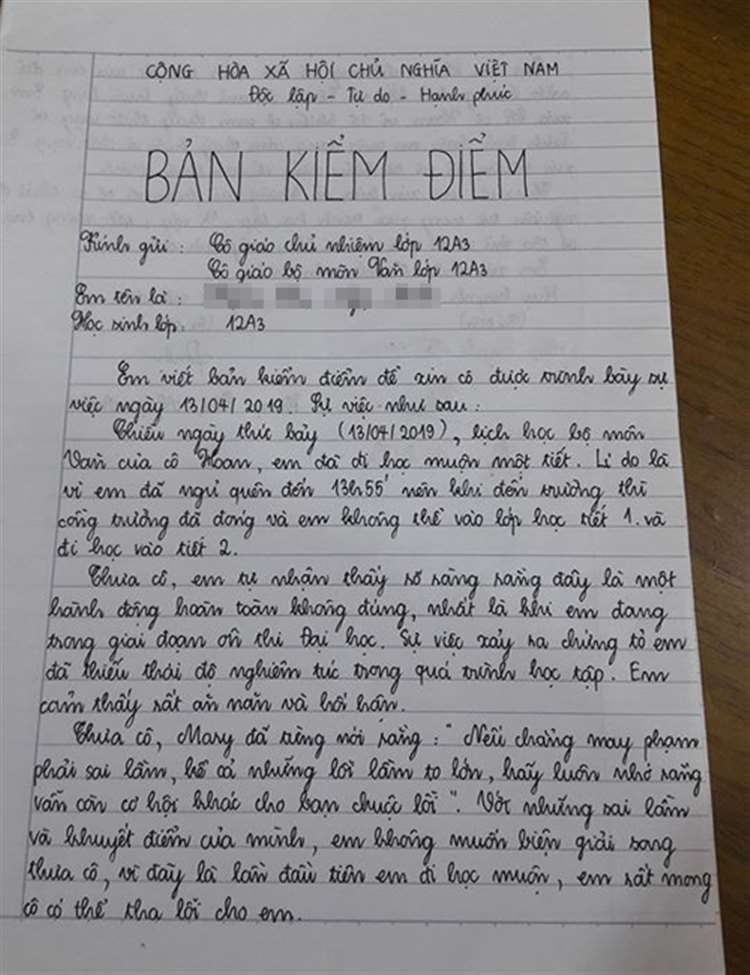 CỘNG HÒA XÃ HỘI CHỦ NGHĨA VIỆT NAM
Độc lập - Tự do - Hạnh phúc
BẢN KIỂM ĐIỂM
Kính gửi: Cô giáo chủ nhiệm lớp 12A3
Cô giáo bộ môn Văn lớp 12A3
Em tên là:
Học sinh lớp: 12A3
Em viết bản kiểm điểm để xin cô được trình bày sự
việc ngày 13/04/2019. Sự việc như sau:
Chiều ngày thứ bảy (13/04/2019), lịch học bộ môn
Văn của cô Hoan, em đã đi học muộn một tiết. Lí do là
vì em đã ngủ quên đến 13h55' nên khi đến trường thì
cổng trường đã đóng và em không thể vào lớp học tiết 1. và
đi học vào tiết 2.
Thưa cô, em tự nhận thấy rõ ràng rằng đây là một
hành động hoàn toàn không đúng, nhất là khi em đang
trong giai đoạn ôn thi Đại học. Sự việc xảy ra chứng tỏ em
đã thiếu thái độ nghiêm túc trong quá trình học tập. Em
cảm thấy rất ăn năn và hối hận.
Thưa cô, Mary đã từng nói rằng: "Nếu chẳng may phạm
phải sai lầm, kể cả những lỗi lầm to lớn, hãy luôn nhớ rằng
vẫn còn cơ hội khác cho bạn chuộc lỗi". Với những sai lầm
và khuyết điểm của mình, em không muốn biện giải song
thưa cô, vì đây là lần đầu tiên em đi học muộn, em rất mong
cô có thể tha lỗi cho em.